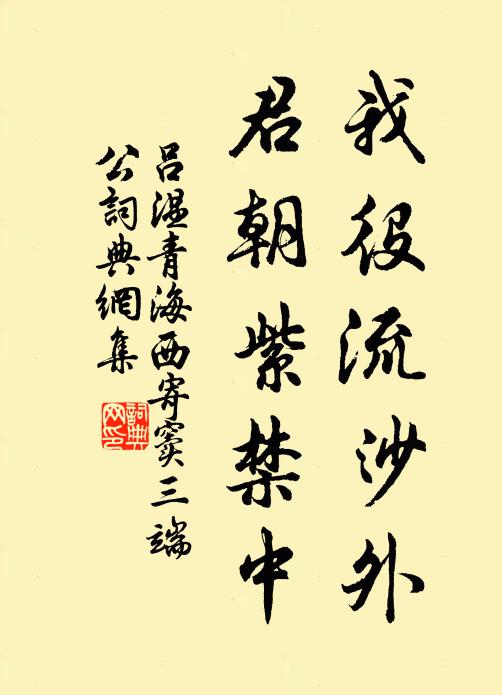 我役流沙外
君朝紫禁中
吕温青海西寄窦三端
公詞典網集
詞典
网印